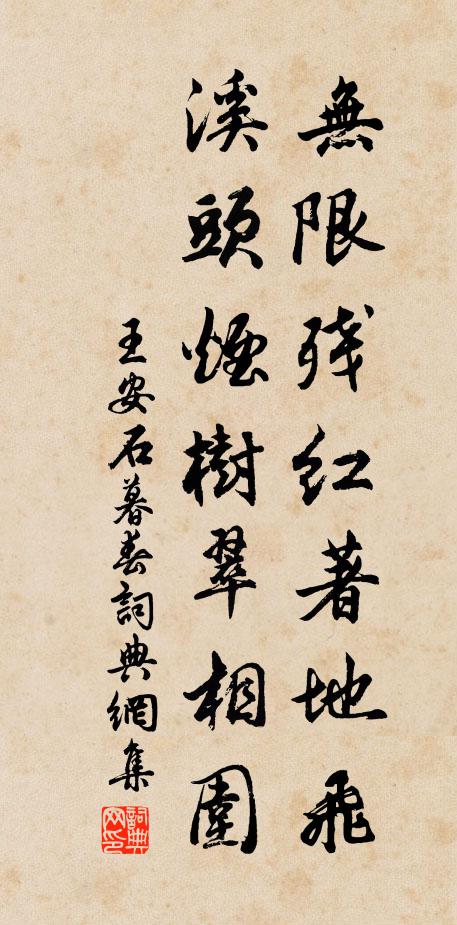 無限殘紅著地飛
溪頭煙樹翠相圍
王安石暮春詞典網集
詞典
网印